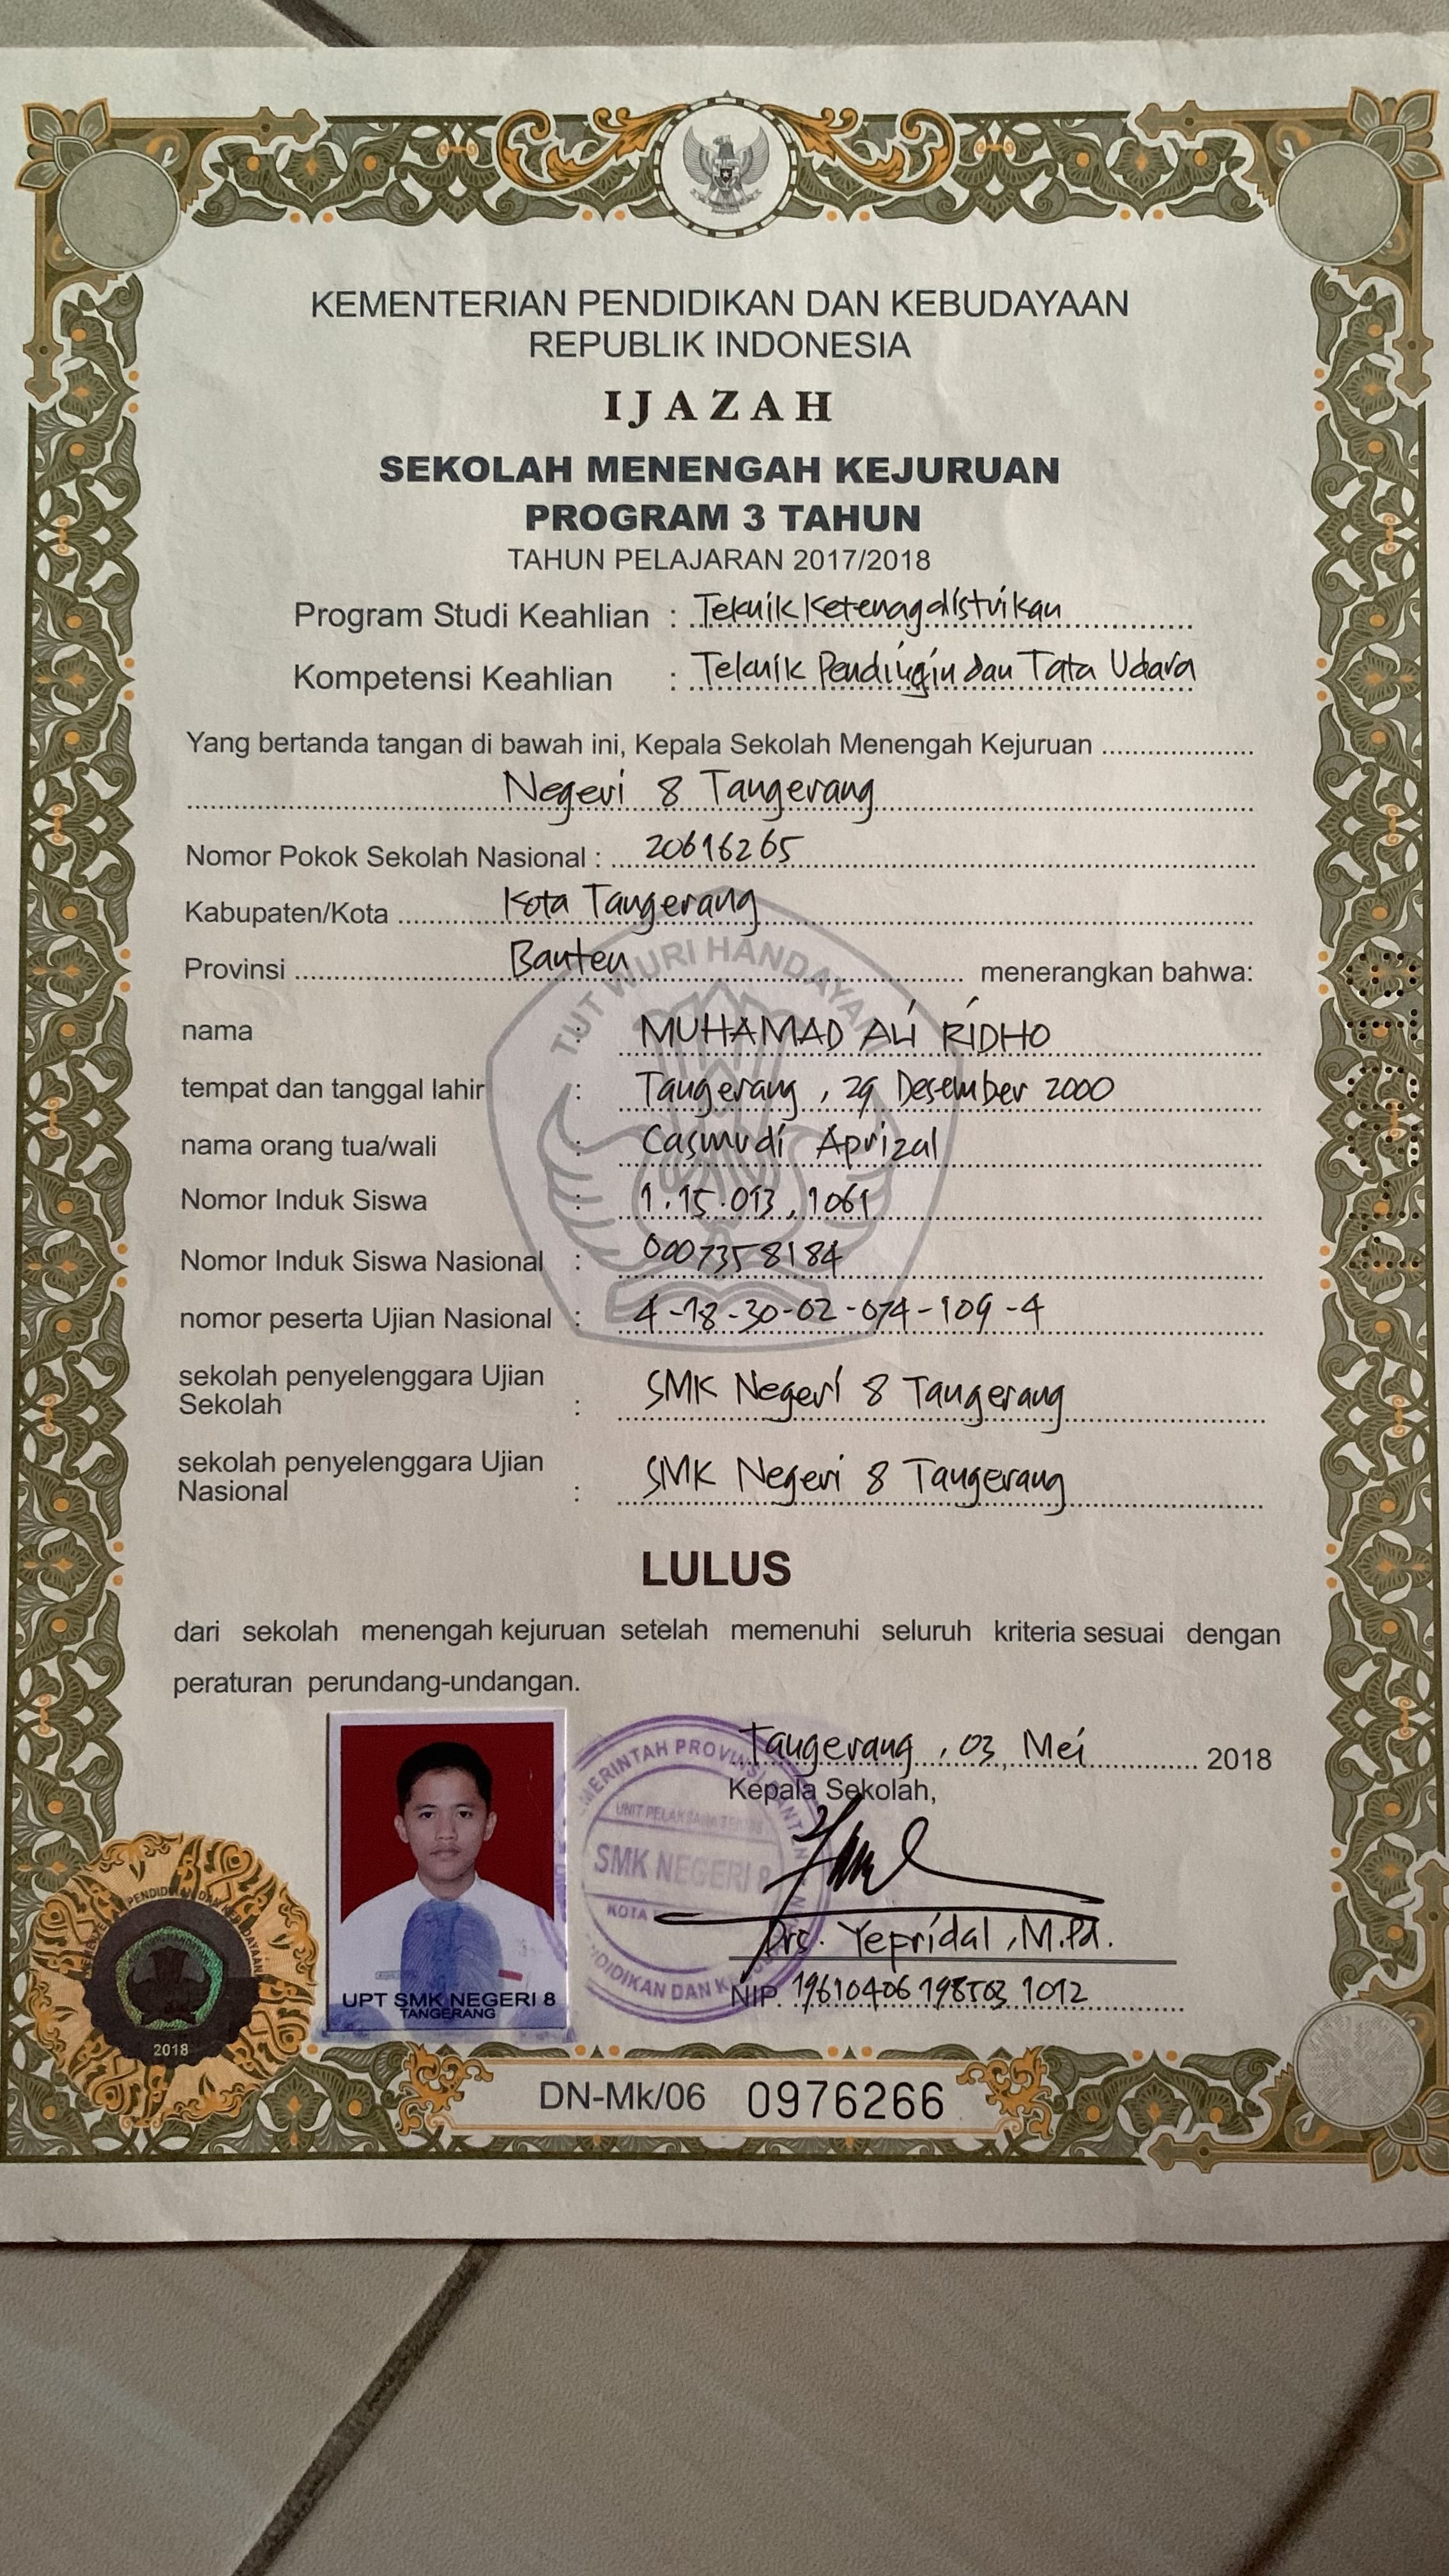 KEMENTERIAN PENDIDIKAN DAN KEBUDAYAAN
REPUBLIK INDONESIA
IJAZAH
SEKOLAH MENENGAH KEJURUAN
PROGRAM 3 TAHUN
TAHUN PELAJARAN 2017/2018
Program Studi Keahlian : Teknik Ketenagalistrikan
Kompetensi Keahlian : Teknik Pendingin dan Tata Udara
Yang bertanda tangan di bawah ini, Kepala Sekolah Menengah Kejuruan
Negeri 8 Tangerang
Nomor Pokok Sekolah Nasional : 20616265
Kabupaten/Kota Kota Tangerang
Provinsi Banten menerangkan bahwa:
TUT WURI HANDAYANI
nama : MUHAMAD ALI RIDHO
tempat dan tanggal lahir : Tangerang, 29 Desember 2000
nama orang tua/wali : Casmudi Aprizal
Nomor Induk Siswa : 1.15.013.1061
Nomor Induk Siswa Nasional : 0007358184
nomor peserta Ujian Nasional : 4-18-30-02-074-109-4
sekolah penyelenggara Ujian
Sekolah : SMK Negeri 8 Tangerang
sekolah penyelenggara Ujian
Nasional : SMK Negeri 8 Tangerang
LULUS
dari sekolah menengah kejuruan setelah memenuhi seluruh kriteria sesuai dengan
peraturan perundang-undangan.
Tangerang, 03 Mei 2018
Kepala Sekolah,
SMK NEGERI 8
KOTA
Drs. Yepridal, M.Pd.
NIP. 19610406 198503 1012
UPT SMK NEGERI 8
TANGERANG
2018
DN-Mk/06 0976266